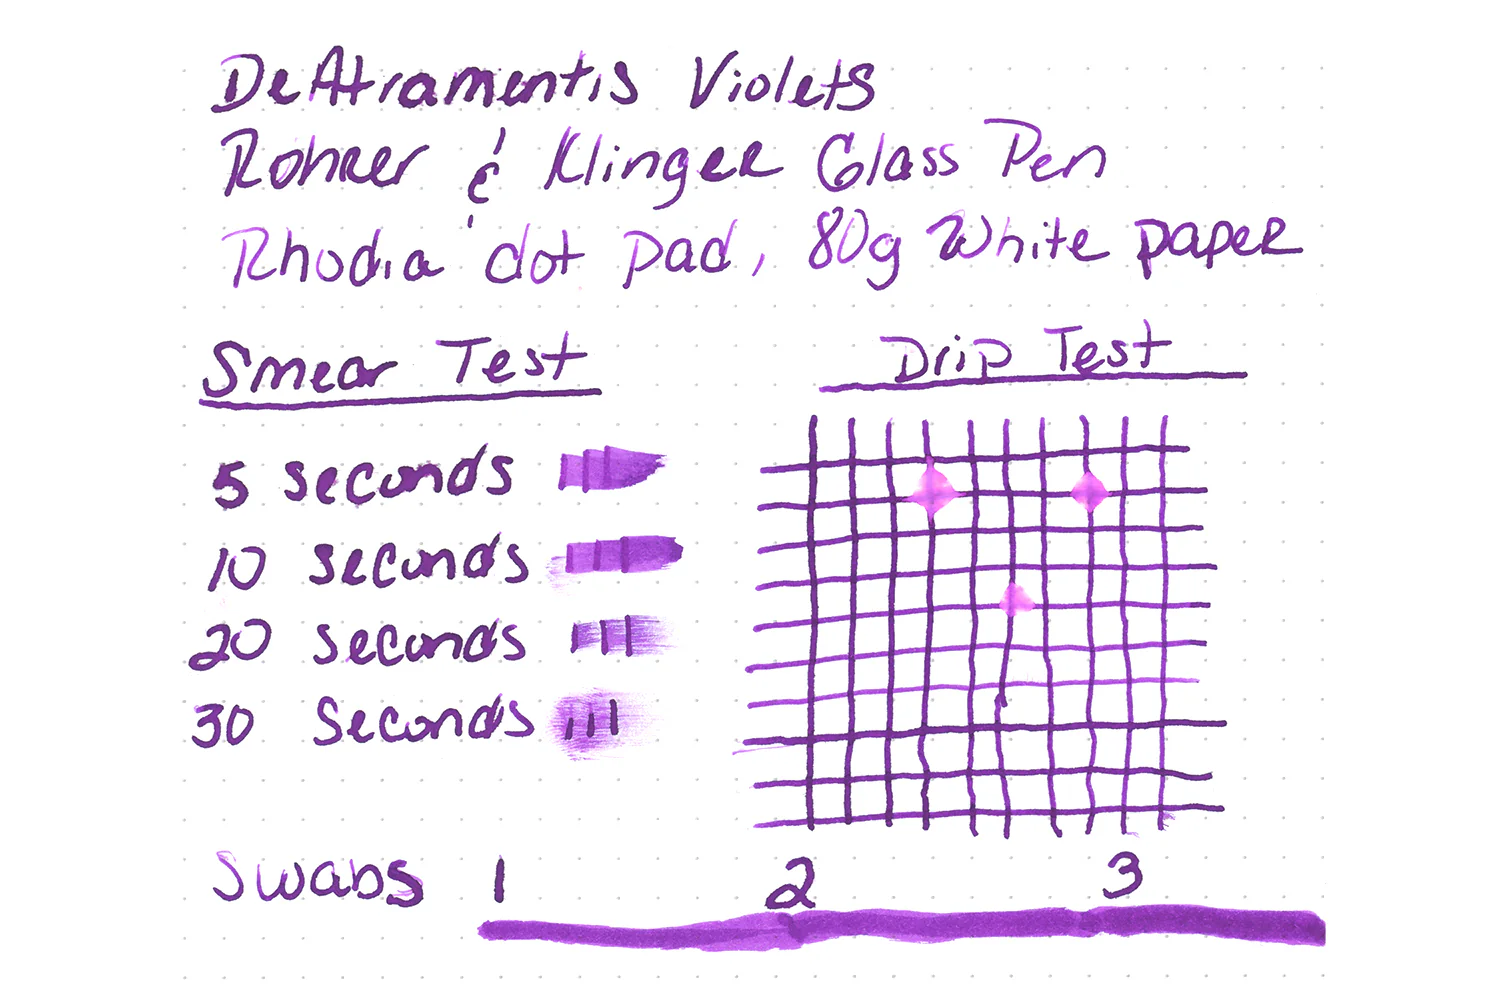 DeAtramentis Violets
Rohrer & Klinger Glass Pen
Rhodia dot pad, 80g White paper
Smear Test
Drip Test
5 seconds
10 seconds
20 seconds
30 seconds
Swabs 1 2 3